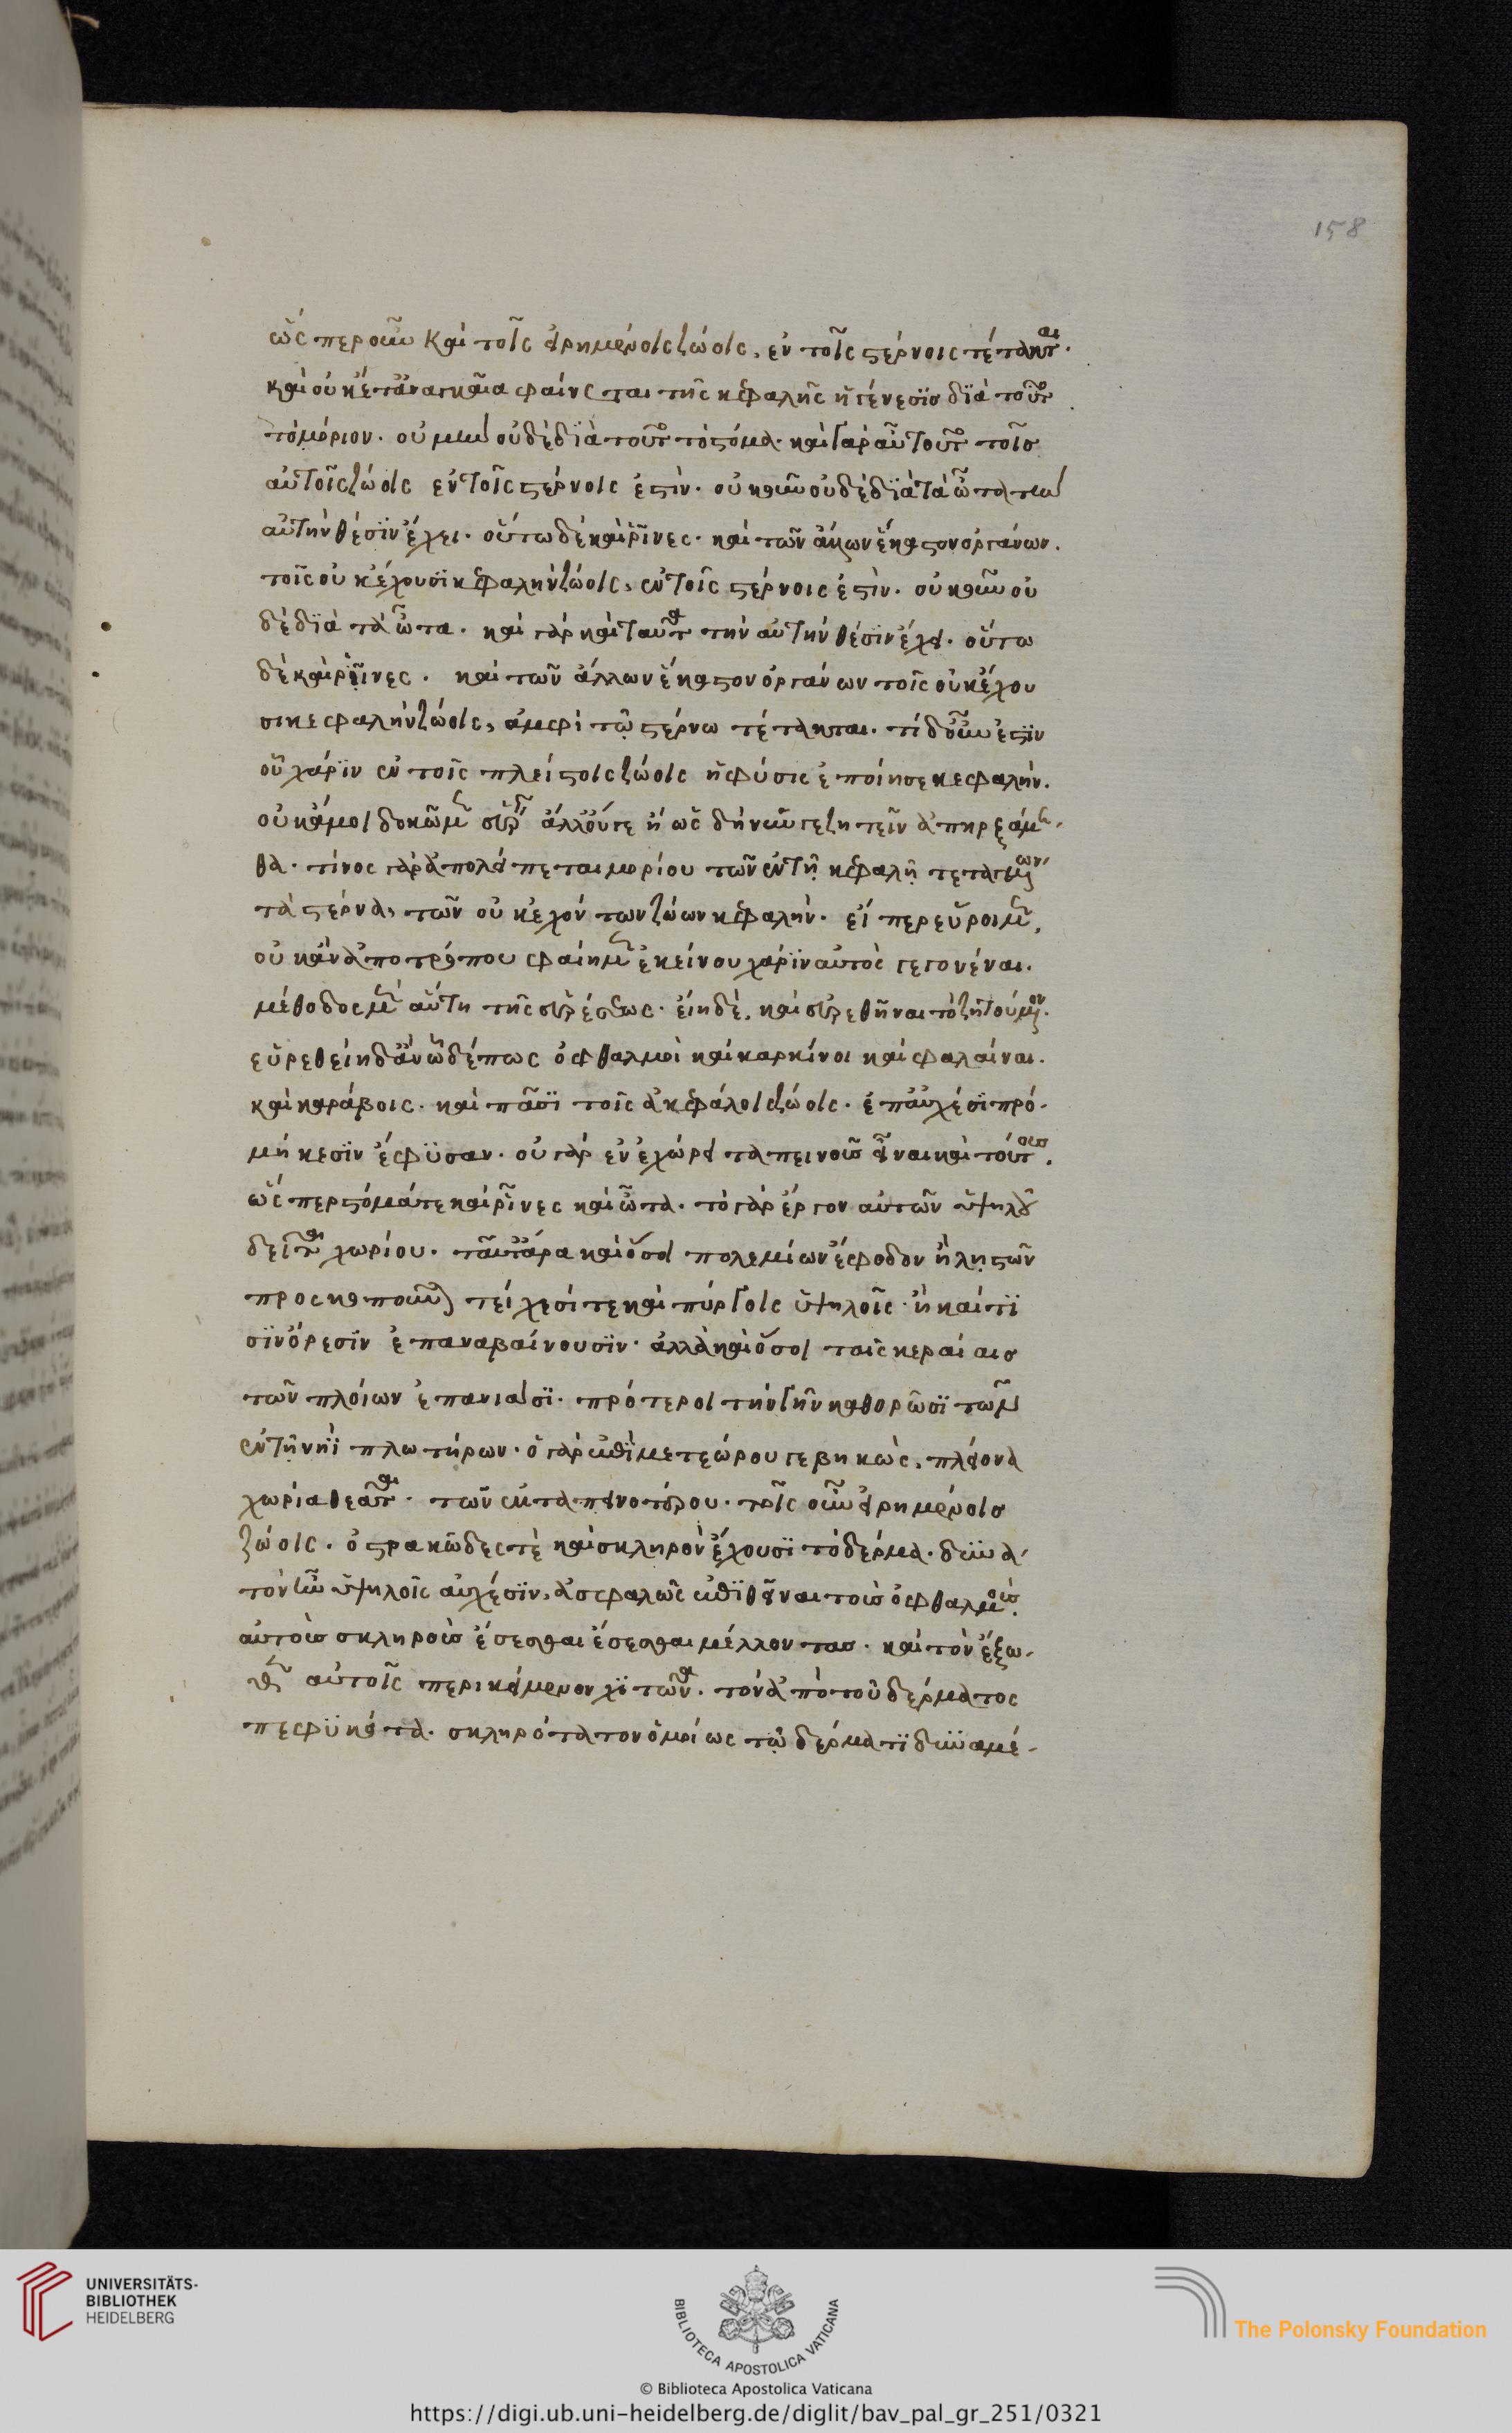 158
ὥσπερ οὖν καὶ τοῖς εἰρημένοις ζώοις, ἐν τοῖς στέρνοις τέτακται.
καὶ οὐκέτ ἀναγκαία φαίνεται τῆς κεφαλῆς ἡ γένεσις διὰ τοῦτο
τὸ μόριον. οὐ μὴν οὐδὲ διὰ τοῦτο τὸ στόμα. καὶ γὰρ αὖ τοῦτο τοῖς
αὐτοῖς ζώοις ἐν τοῖς στέρνοις ἐστὶν. οὐκ οὖν οὐδὲ διὰ τὰ ὦτα τὴν
αὐτὴν θέσιν ἔχει. οὕτω δὲ καὶ ῥῖνες. καὶ τῶν ἄλλων ἕκαστον ὀργάνων.
τοῖς οὐκ ἔχουσι κεφαλὴν ζώοις, ἐν τοῖς στέρνοις ἐστὶν. οὐκ οὖν οὐ
δὲ διὰ τὰ ὦτα. καὶ γὰρ καὶ ταῦτα τὴν αὐτὴν θέσιν ἔχει. οὕτω
δὲ καὶ ῥῖνες. καὶ τῶν ἄλλων ἕκαστον ὀργάνων τοῖς οὐκ ἔχου
σι κεφαλὴν ζώοις, ἀμφὶ τῷ στέρνω τέτακται. τί δ οὖν ἐστὶν
οὗ χάριν ἐν τοῖς πλείστοις ζώοις ἡ φύσις ἐποίησε κεφαλήν.
οὐκ ἄμοι δοκῶμεν εὑρεῖν ἄλλο γε ἢ ὡς δὴ νῦν γε ζητεῖν ἀπηρξάμε-
θα. τίνος γὰρ ἀπολείπεται μορίου τῶν ἐν τῇ κεφαλῇ τεταγμένων
τὰ στέρνα, τῶν οὐκ ἐχόντων ζώων κεφαλὴν. εἴπερ εὕροιμεν,
οὐκ ἂν ἀπὸ τρόπου φαίημεν ἐκείνου χάριν αὐτὸς γεγονέναι.
μέθοδος μὲν αὕτη τῆς εὑρέσεως. εἴη δὲ, καὶ εὑρεθῆναι τὸ ζητούμενον.
εὑρεθείη δ ἂν ὧδέ πως ὀφθαλμοὶ καὶ καρκίνοι καὶ φαλαίναι.
καὶ καράβοις. καὶ πᾶσι τοῖς ἀκεφάλοις ζώοις. ἐπ αὐχέσι προ-
μήκεσιν ἔφυσαν. οὐ γὰρ ἐνεχώρει ταπεινοῖς εἶναι καὶ τούτοις.
ὥσπερ στόματε καὶ ῥῖνες καὶ ὦτα. τὸ γὰρ ἔργον αὐτῶν ὑψηλοῦ
δεῖται χωρίου. ταῦτ ἄρα καὶ ὅσοι πολεμίων ἔφοδον ἢ λῃστῶν
προσκοποῦσι τείχεσί τε καὶ πύργοις ὑψηλοῖς. ἢ καί τι
σιν ὄρεσιν ἐπαναβαίνουσιν. ἀλλὰ καὶ ὅσοι ταῖς κεραίαις
τῶν πλοίων ἐπανιᾶσι. πρότεροι τὴν γῆν καθορῶσι τῶν
ἐν τῇ νηῒ πλωτήρων. ὁ γὰρ ἐπὶ μετεώρου βεβηκὼς, πλείονα
χωρία θεᾶται. τῶν ἐκ ταπεινοτέρου. τοῖς οὖν εἰρημένοις
ζώοις. ὀστρακῶδές τε καὶ σκληρὸν ἔχουσι τὸ δέρμα. δυνα-
τὸν ἦν ὑψηλοῖς αὐχέσιν, ἀσφαλῶς ἐπιθεῖναι τοὺς ὀφθαλμοὺς.
αὐτοὺς σκληροὺς ἔσεσθαι ἔσεσθαι μέλλοντας. καὶ τὸν ἔξω-
θεν αὐτοῖς περικείμενον χιτῶνα. τὸν ἀπὸ τοῦ δέρματος
πεφυκότα. σκληρότατον ὁμοίως τῷ δέρματι δυναμέ-
UNIVERSITÄTS-
BIBLIOTHEK
HEIDELBERG
BIBLIOTECA APOSTOLICA VATICANA
The Polonsky Foundation
© Biblioteca Apostolica Vaticana
https://digi.ub.uni-heidelberg.de/diglit/bav_pal_gr_251/0321